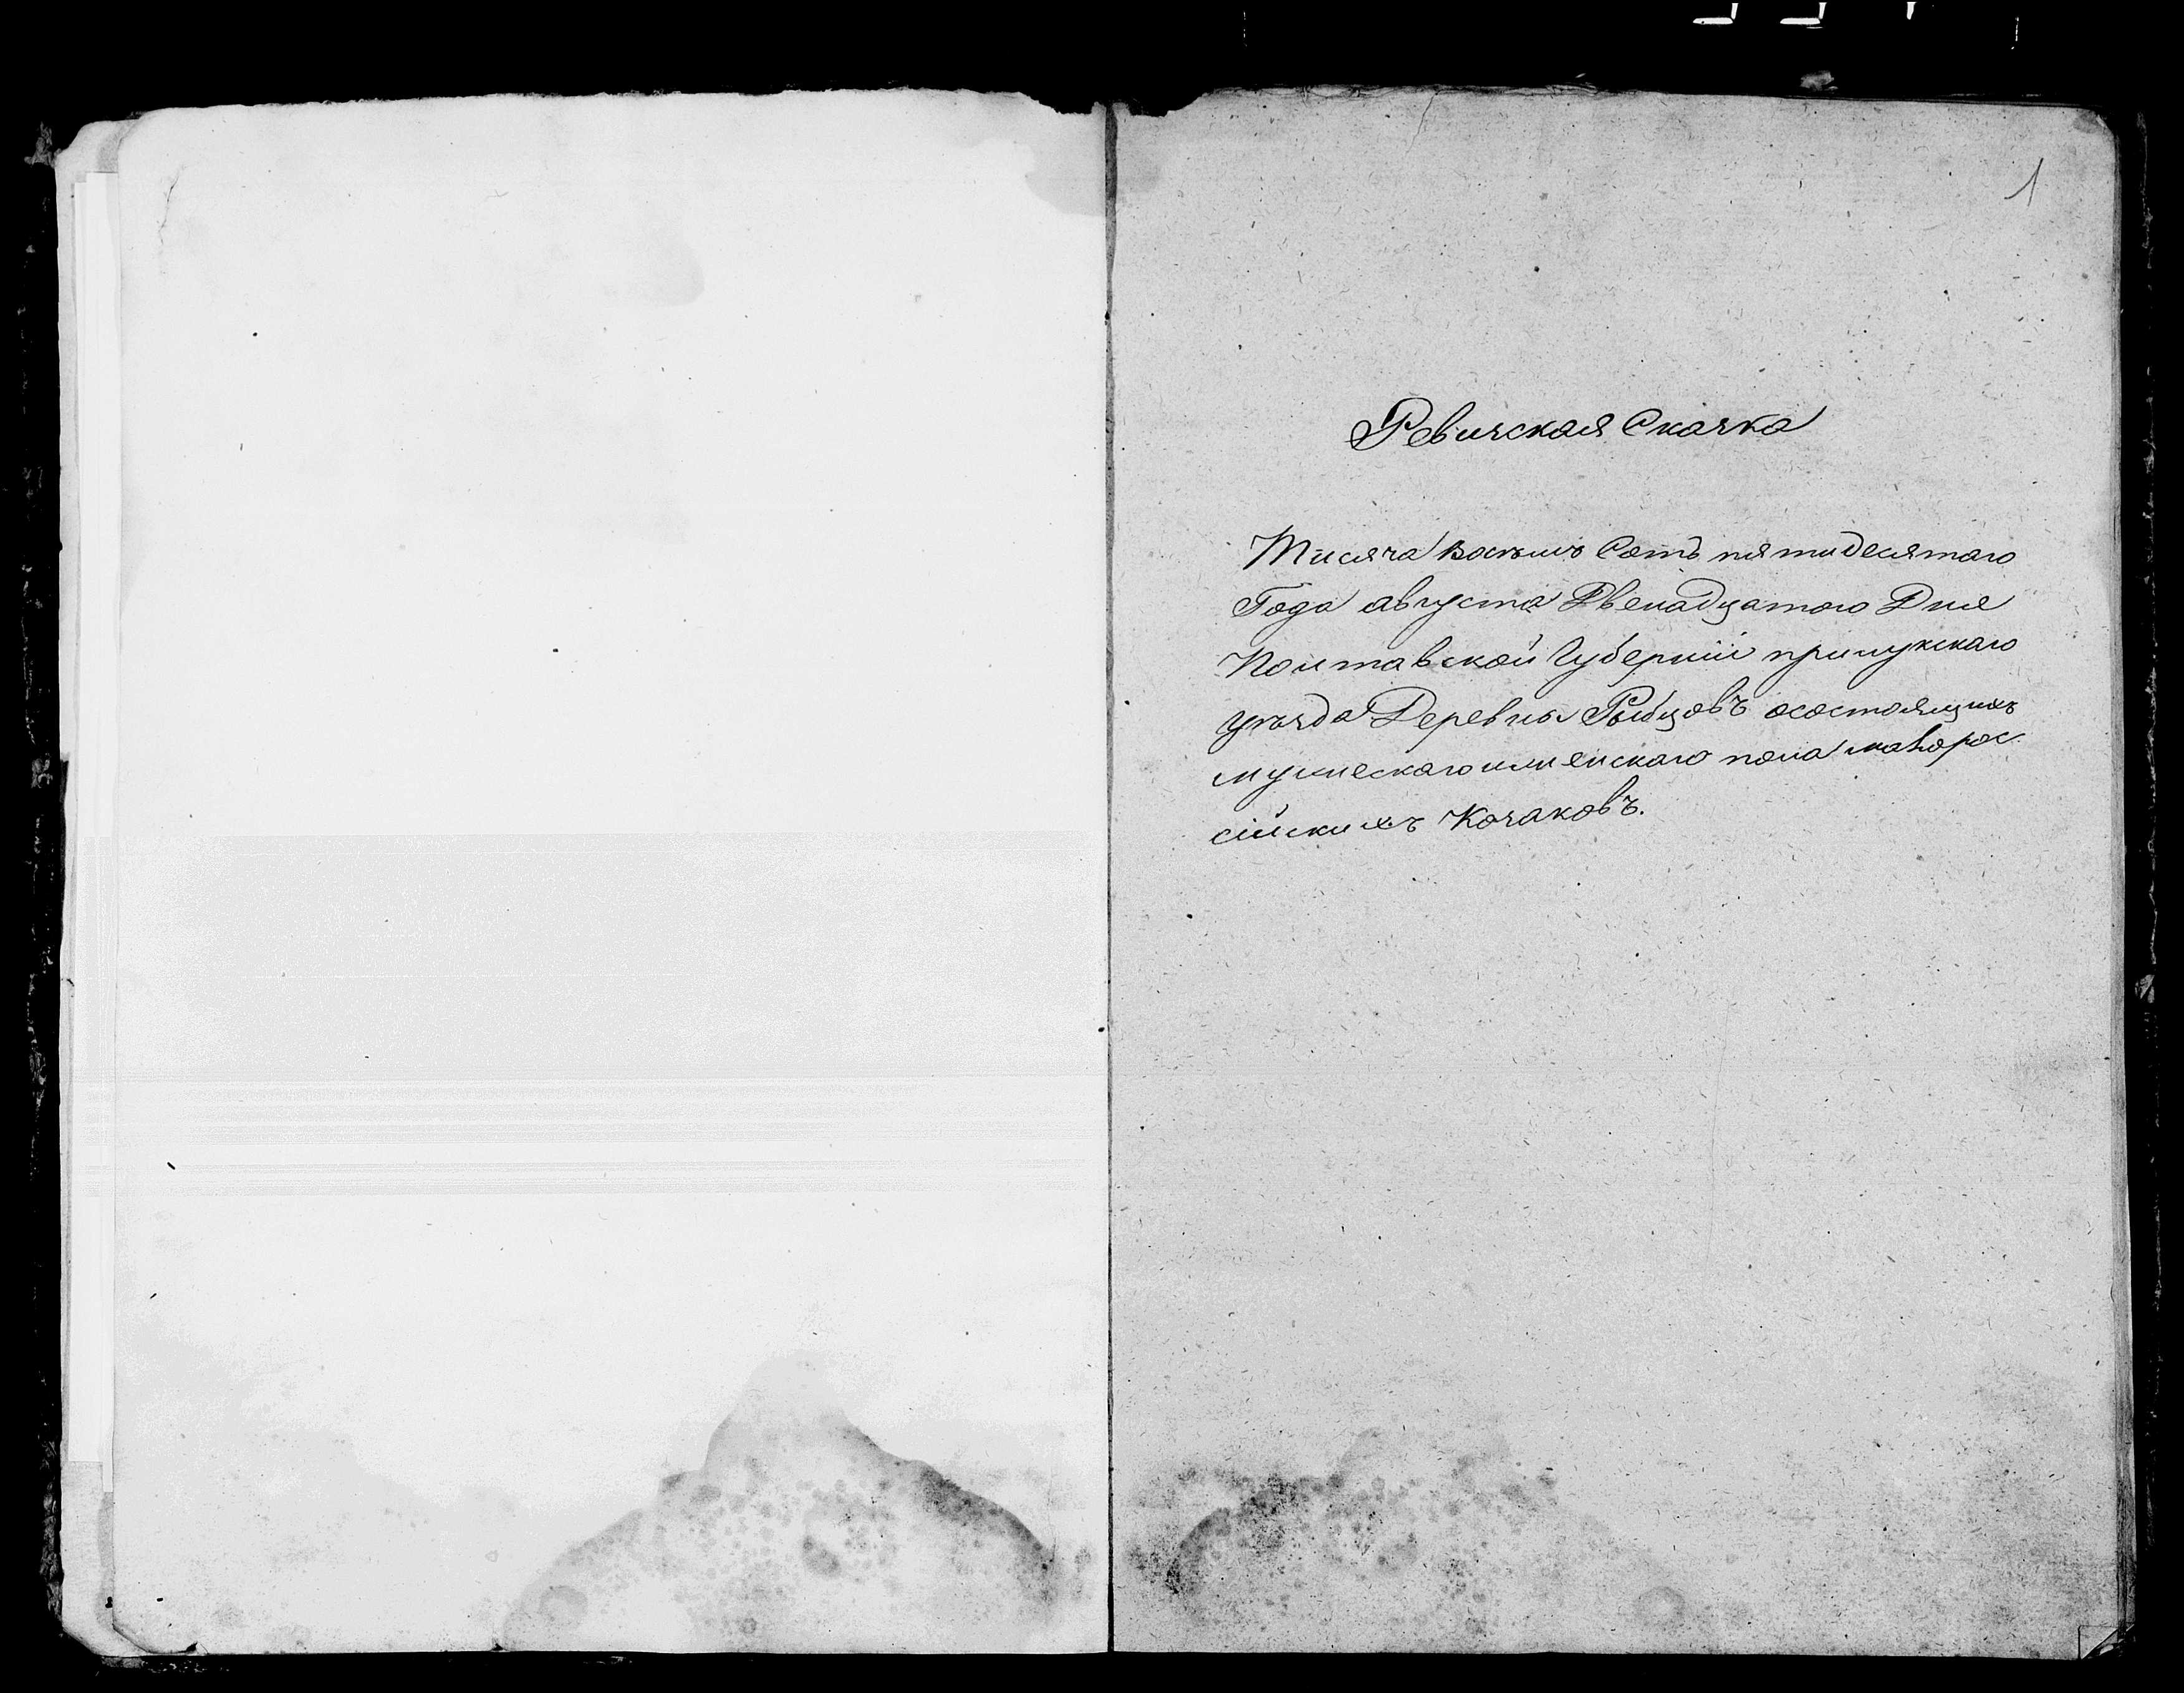 1
Ревизская Сказка
Тысяча восемь Сотъ пятидесятаго
Года августа Двенадцатого Дня
Полтавской Губерніи прилукскаго
уѣзда Деревны Рыбцовъ осостоящихъ
мужескаго иженскаго пола малорос
сійскихъ Козаковъ.